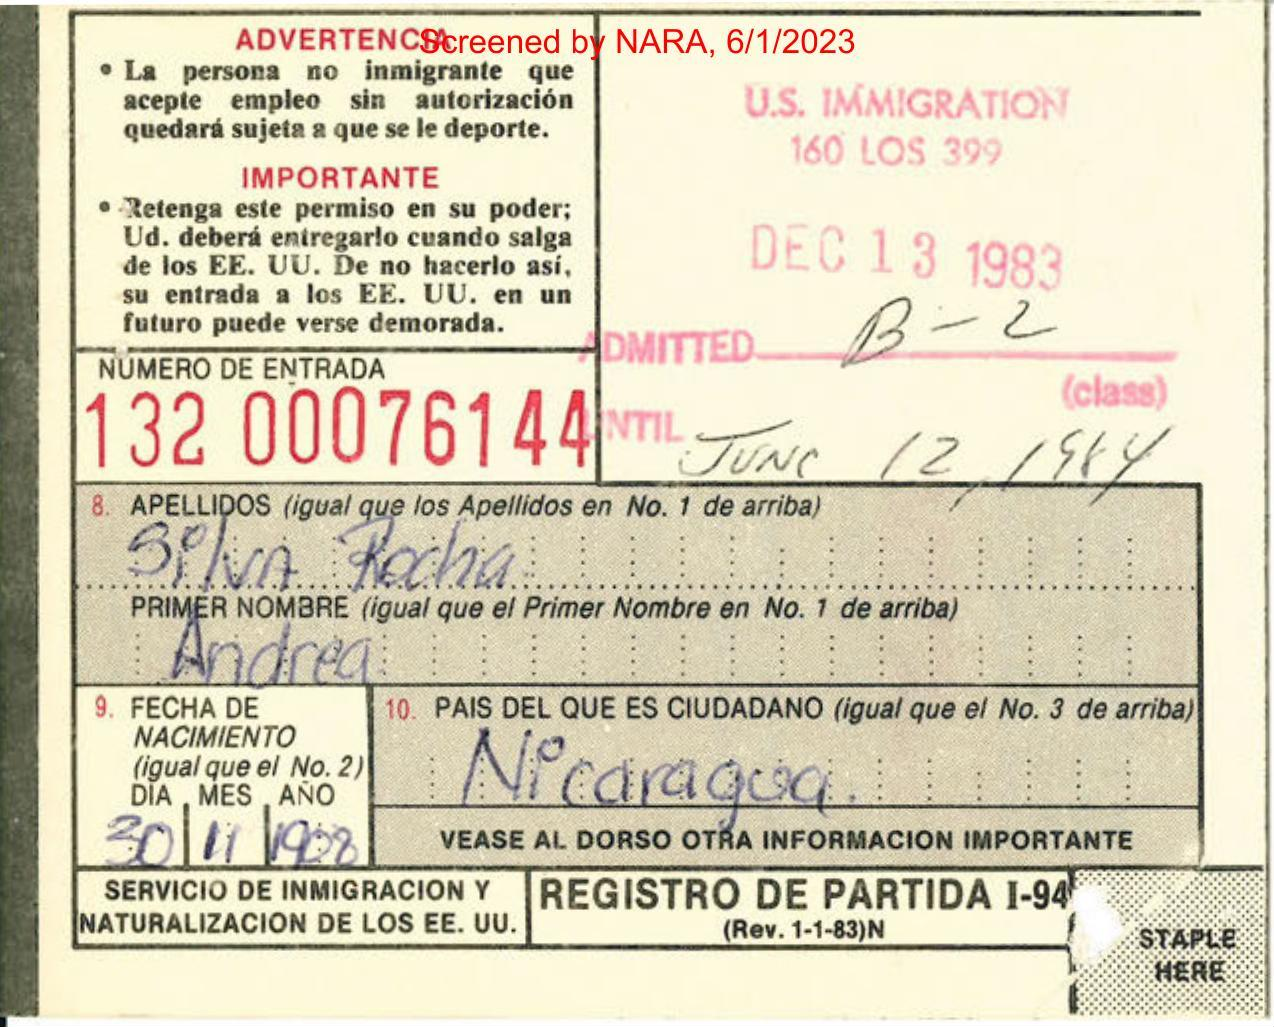 Screened by NARA, 6/1/2023
ADVERTENCIA
• La persona no inmigrante que
acepte empleo sin autorización
quedará sujeta a que se le deporte.
IMPORTANTE
• Retenga este permiso en su poder;
Ud. deberá entregarlo cuando salga
de los EE. UU. De no hacerlo así,
su entrada a los EE. UU. en un
futuro puede verse demorada.
NUMERO DE ENTRADA
132 00076144
U.S. IMMIGRATION
160 LOS 399
DEC 13 1983
ADMITTED B-2
(class)
UNTIL June 12, 1984
8. APELLIDOS (igual que los Apellidos en No. 1 de arriba)
Silva Rocha
PRIMER NOMBRE (igual que el Primer Nombre en No. 1 de arriba)
Andrea
9. FECHA DE
NACIMIENTO
(igual que el No. 2)
DIA MES AÑO
30 11 1908
10. PAIS DEL QUE ES CIUDADANO (igual que el No. 3 de arriba)
Nicaragua.
VEASE AL DORSO OTRA INFORMACION IMPORTANTE
SERVICIO DE INMIGRACION Y
NATURALIZACION DE LOS EE. UU.
REGISTRO DE PARTIDA I-94
(Rev. 1-1-83)N
STAPLE
HERE